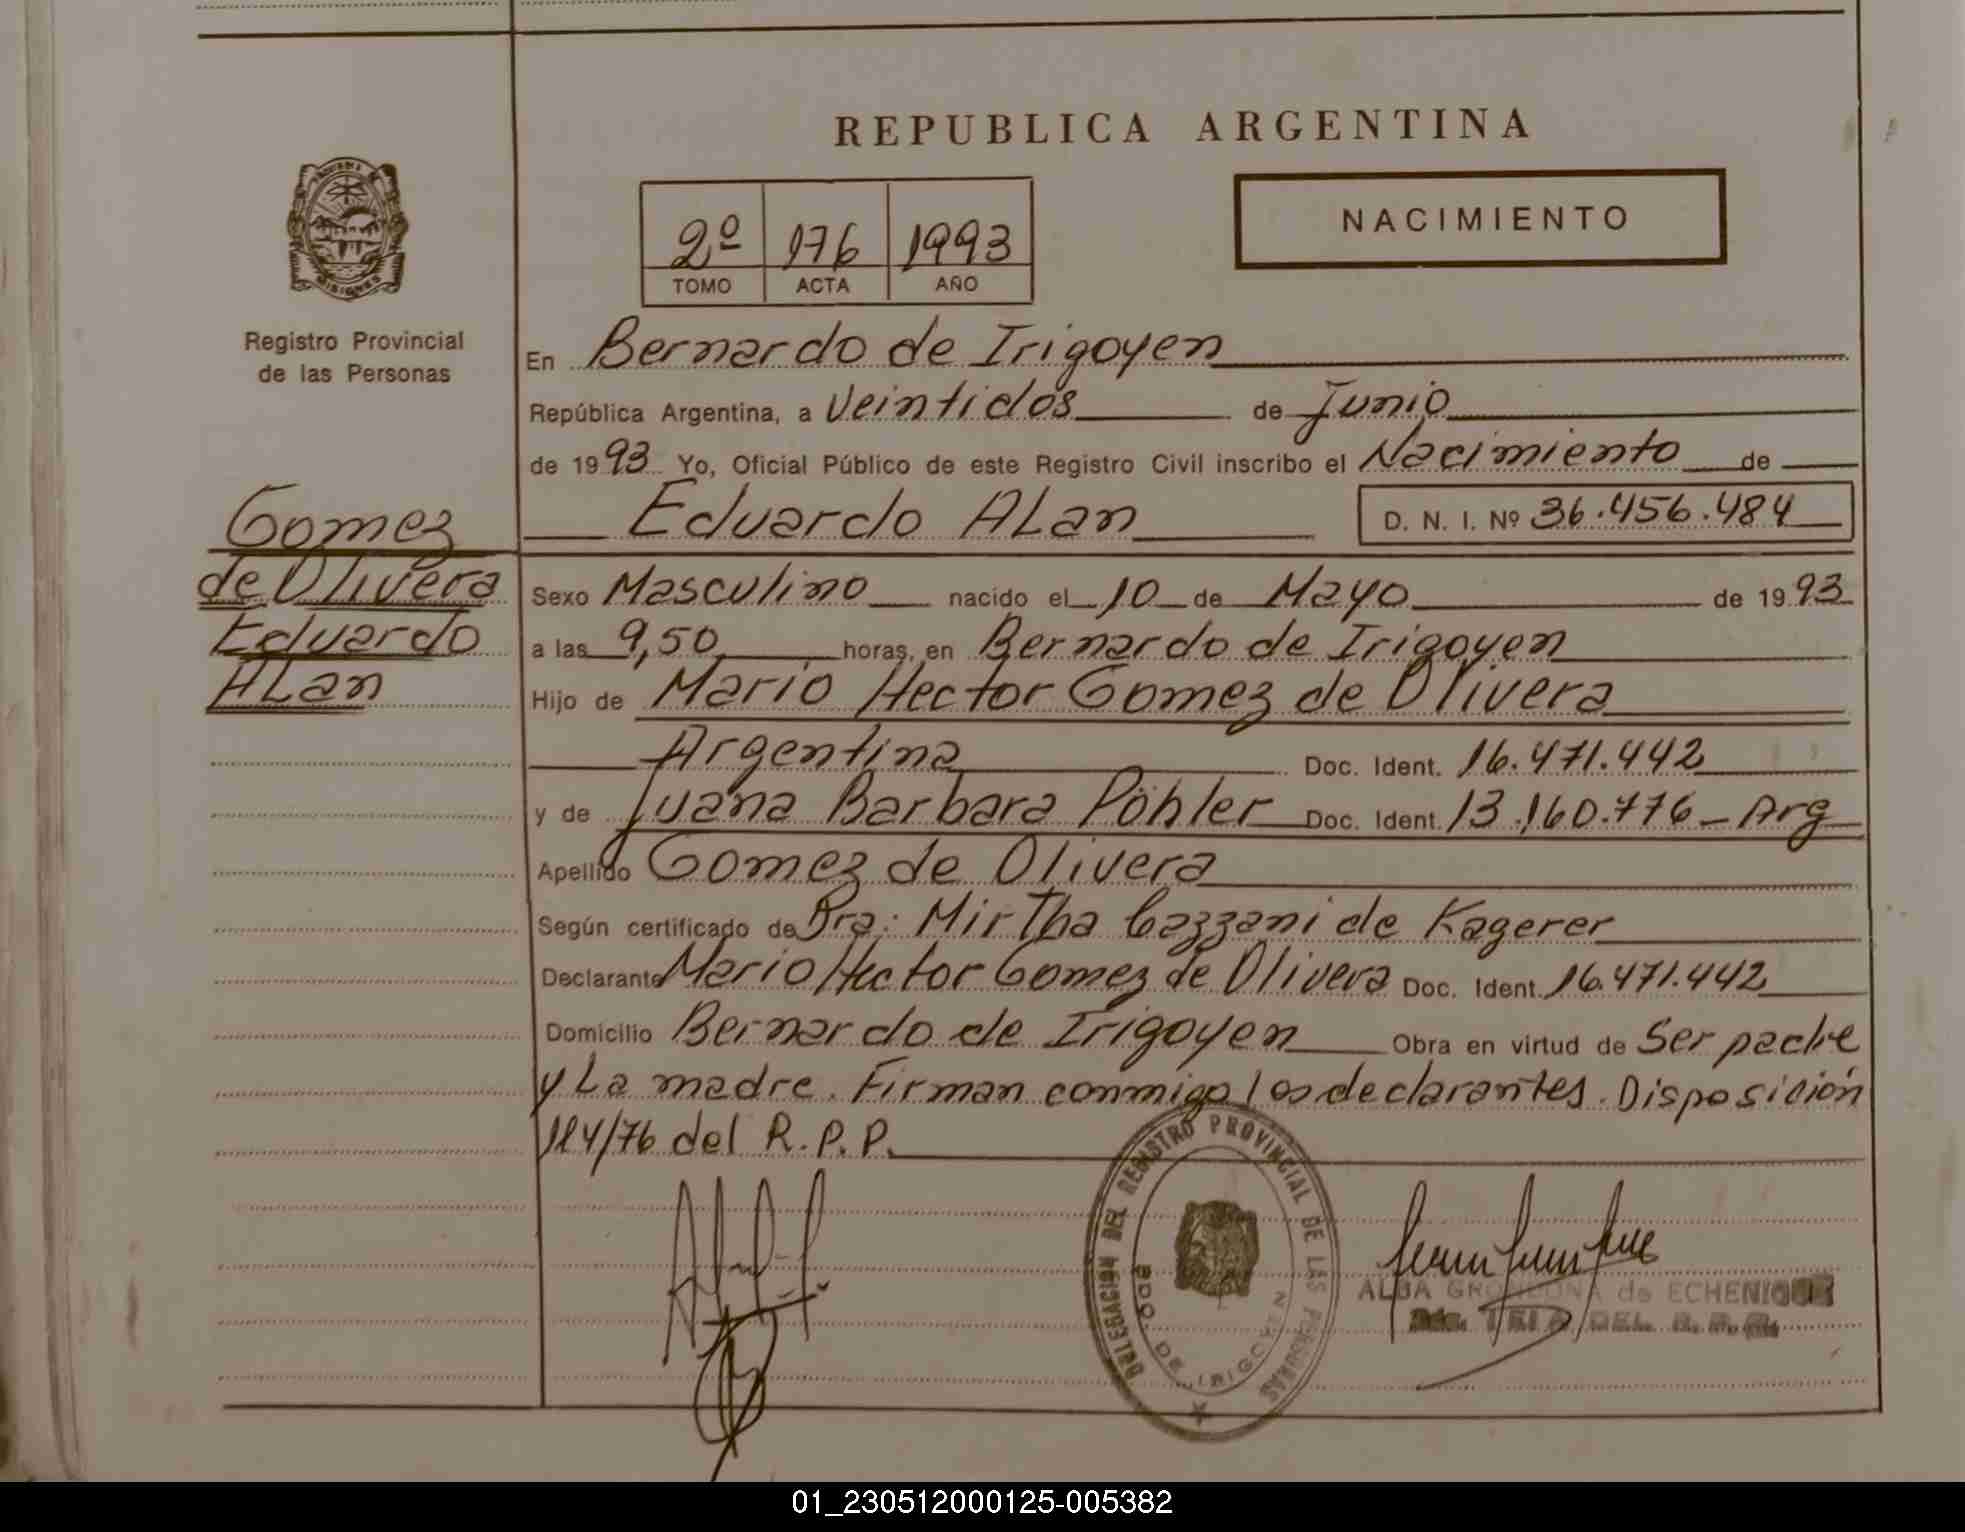 REPUBLICA ARGENTINA
NACIMIENTO
2º 176 1993
TOMO ACTA AÑO
MISIONES
Registro Provincial
de las Personas
En Bernardo de Irigoyen
República Argentina, a Veintidos de Junio
de 1993 Yo, Oficial Público de este Registro Civil inscribo el Nacimiento de
Eduardo ALan D. N. I. Nº 36.456.484
Gomez
de Olivera
Eduardo
ALan
Sexo Masculino nacido el 10 de Mayo de 1993
a las 9,50 horas, en Bernardo de Irigoyen
Hijo de Mario Hector Gomez de Olivera
Argentina Doc. Ident. 16.471.442
y de Juana Barbara Pöhler Doc. Ident. 13.160.776 - Arg
Apellido Gomez de Olivera
Según certificado de Dra: Mirtha Cazzani de Kagerer
Declarante Mario Hector Gomez de Olivera Doc. Ident. 16.471.442
Domicilio Bernardo de Irigoyen Obra en virtud de Ser padre
y La madre. Firman conmigo los declarantes. Disposición
114/76 del R.P.P.
DELEGACION DEL REGISTRO PROVINCIAL DE LAS PERSONAS
BDO. DE IRIGOYEN
ALBA GRONDONA de ECHENIQUE
DEL R.P.P.
01_230512000125-005382